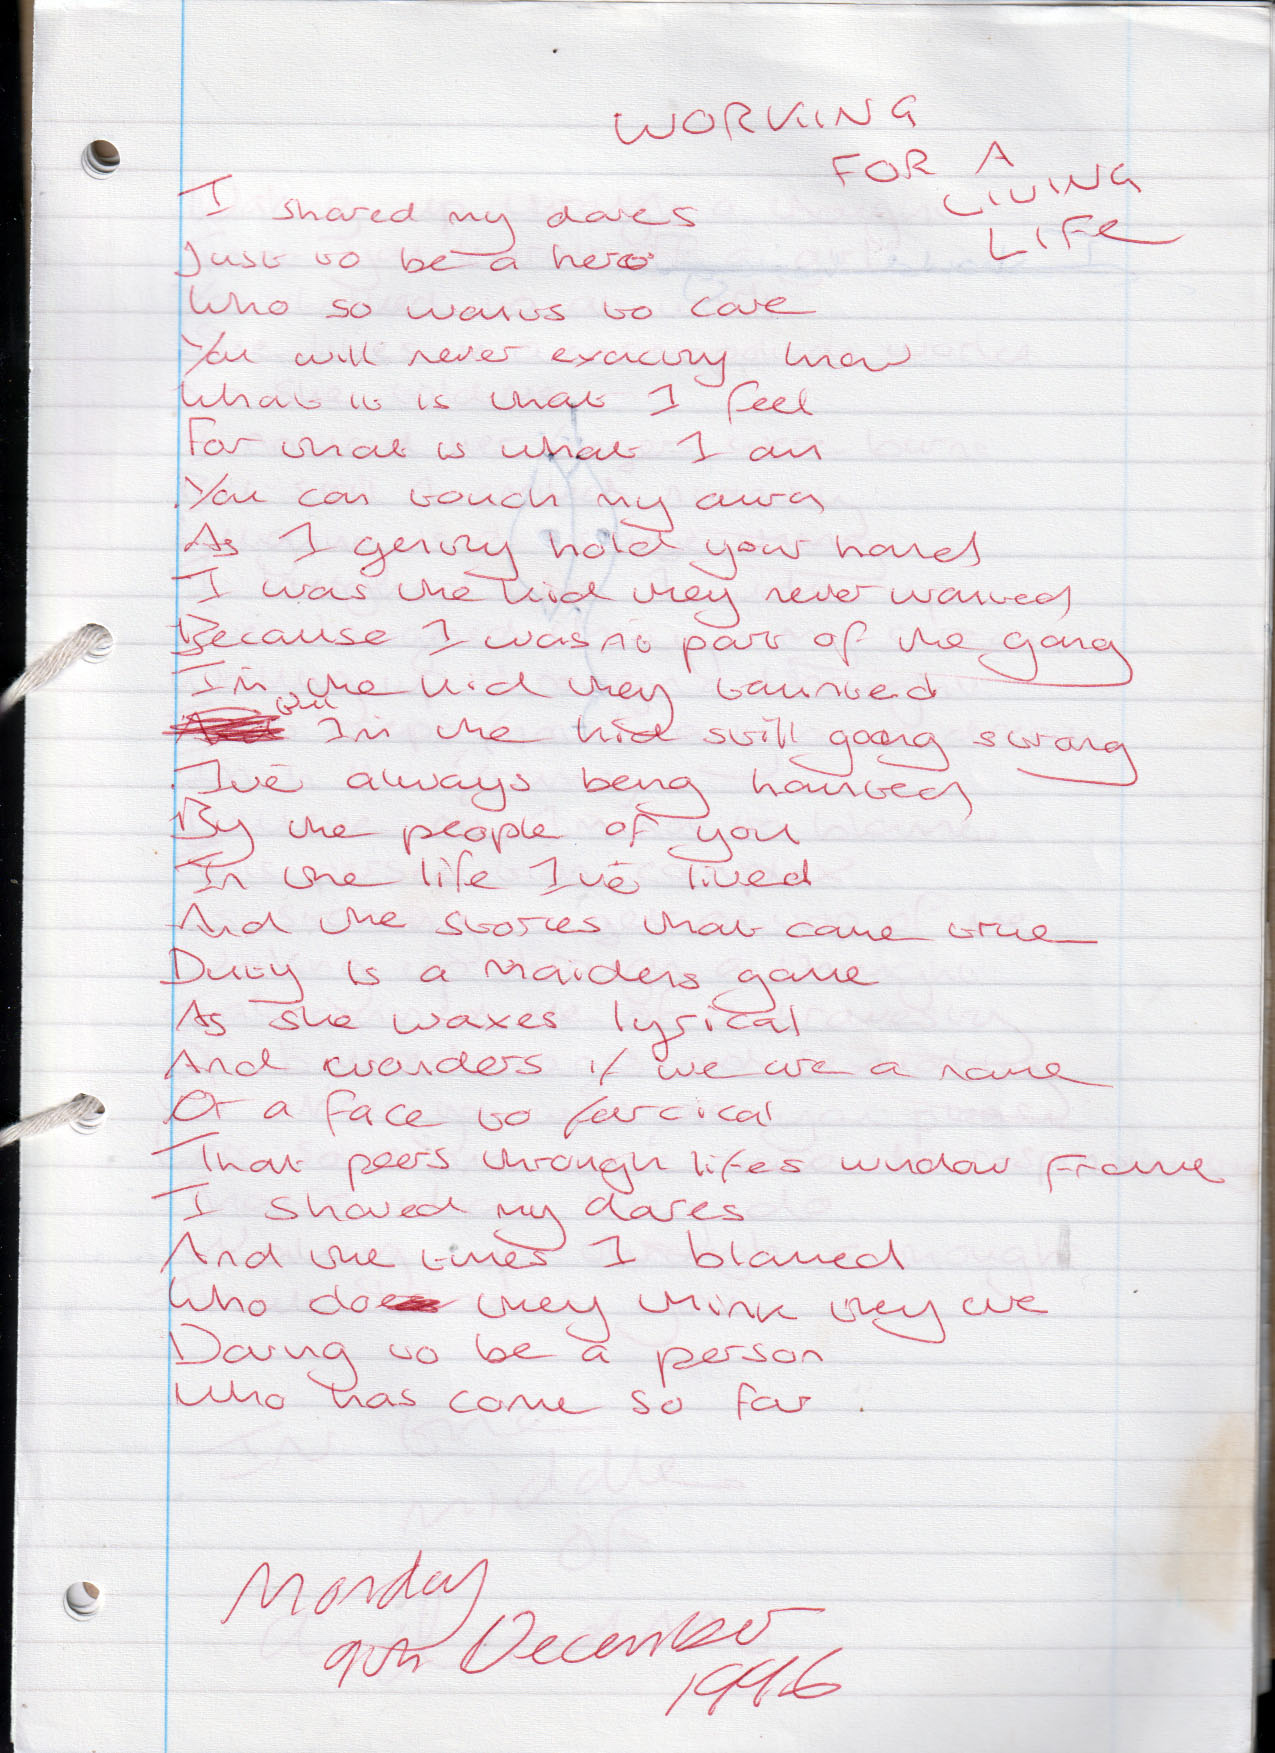 WORKING
FOR A
LIVING
LIFE
I shared my dares
Just to be a hero
Who so wants to care
You will never exactly know
What it is that I feel
For that is what I am
You can touch my aura
As I gently hold your hand
I was the kid they never wanted
Because I was no part of the gang
I'm the kid they taunted
But I'm the kid still going strong
I've always being haunted
By the people of you
In the life I've lived
And the stories that came true
Duty is a maidens game
As she waxes lyrical
And wonders if we are a name
Or a face to farcical
That peers through lifes window frame
I shared my dares
And the times I blamed
Who do they think they are
Daring to be a person
Who has come so far
Monday
9th December
1996